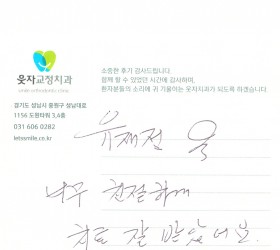 웃자교정치과
소중한 후기 감사드립니다.
함께 할 수 있었던 시간에 감사하며,
환자분들의 소리에 귀 기울이는 웃자치과가 되도록 하겠습니다.
경기도 성남시 중원구 성남대로
1156 도원타워 3,4층
031 606 0282
letssmile.co.kr
유재정 올
너무 친절하게
치료 잘 받았어요.